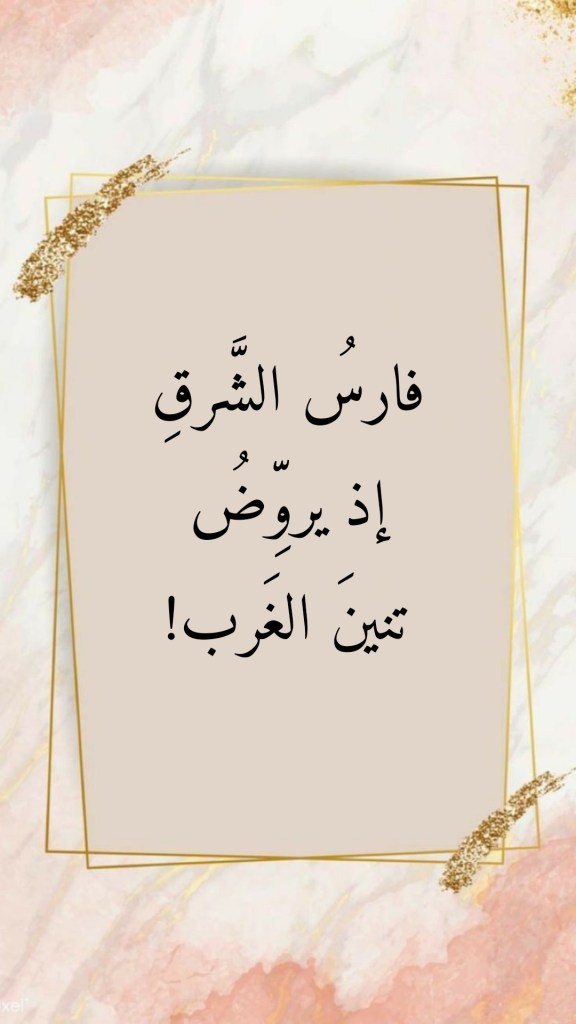 فارسُ الشَّرقِ
إذ يروِّضُ
تنينَ الغَرب!
xel